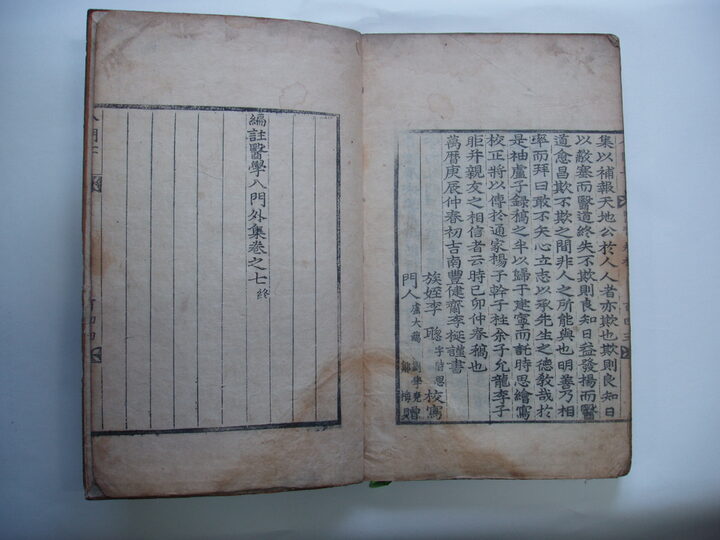 集以補報天地公於人人者亦欺也欺則良知日
以蔽塞而醫道終失不欺則良知日益發揚而醫
道愈昌欺不欺之間非人之所能與也明善乃相
率而拜曰敢不矢心立志以承先生之德教哉於
是袖盧子錄稿之半以歸于建寧而託時思繪寫
校正將以傳於通家楊子幹子桂余子允龍李子
昛并親友之相信者云時己卯仲春稿也
萬曆庚辰仲春初吉南豐健齋李梴謹書
族姪李聰字時思校寫
門人
編註醫學入門外集卷之七終